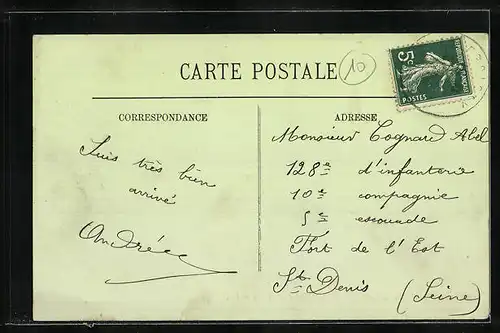 CARTE POSTALE
10
5c
POSTES
CORRESPONDANCE
Suis très bien
arrivé
Andrée
ADRESSE
Monsieur Cognard Abel
128e d'infanterie
10e compagnie
5e escouade
Fort de l'Est
St Denis
(Seine)